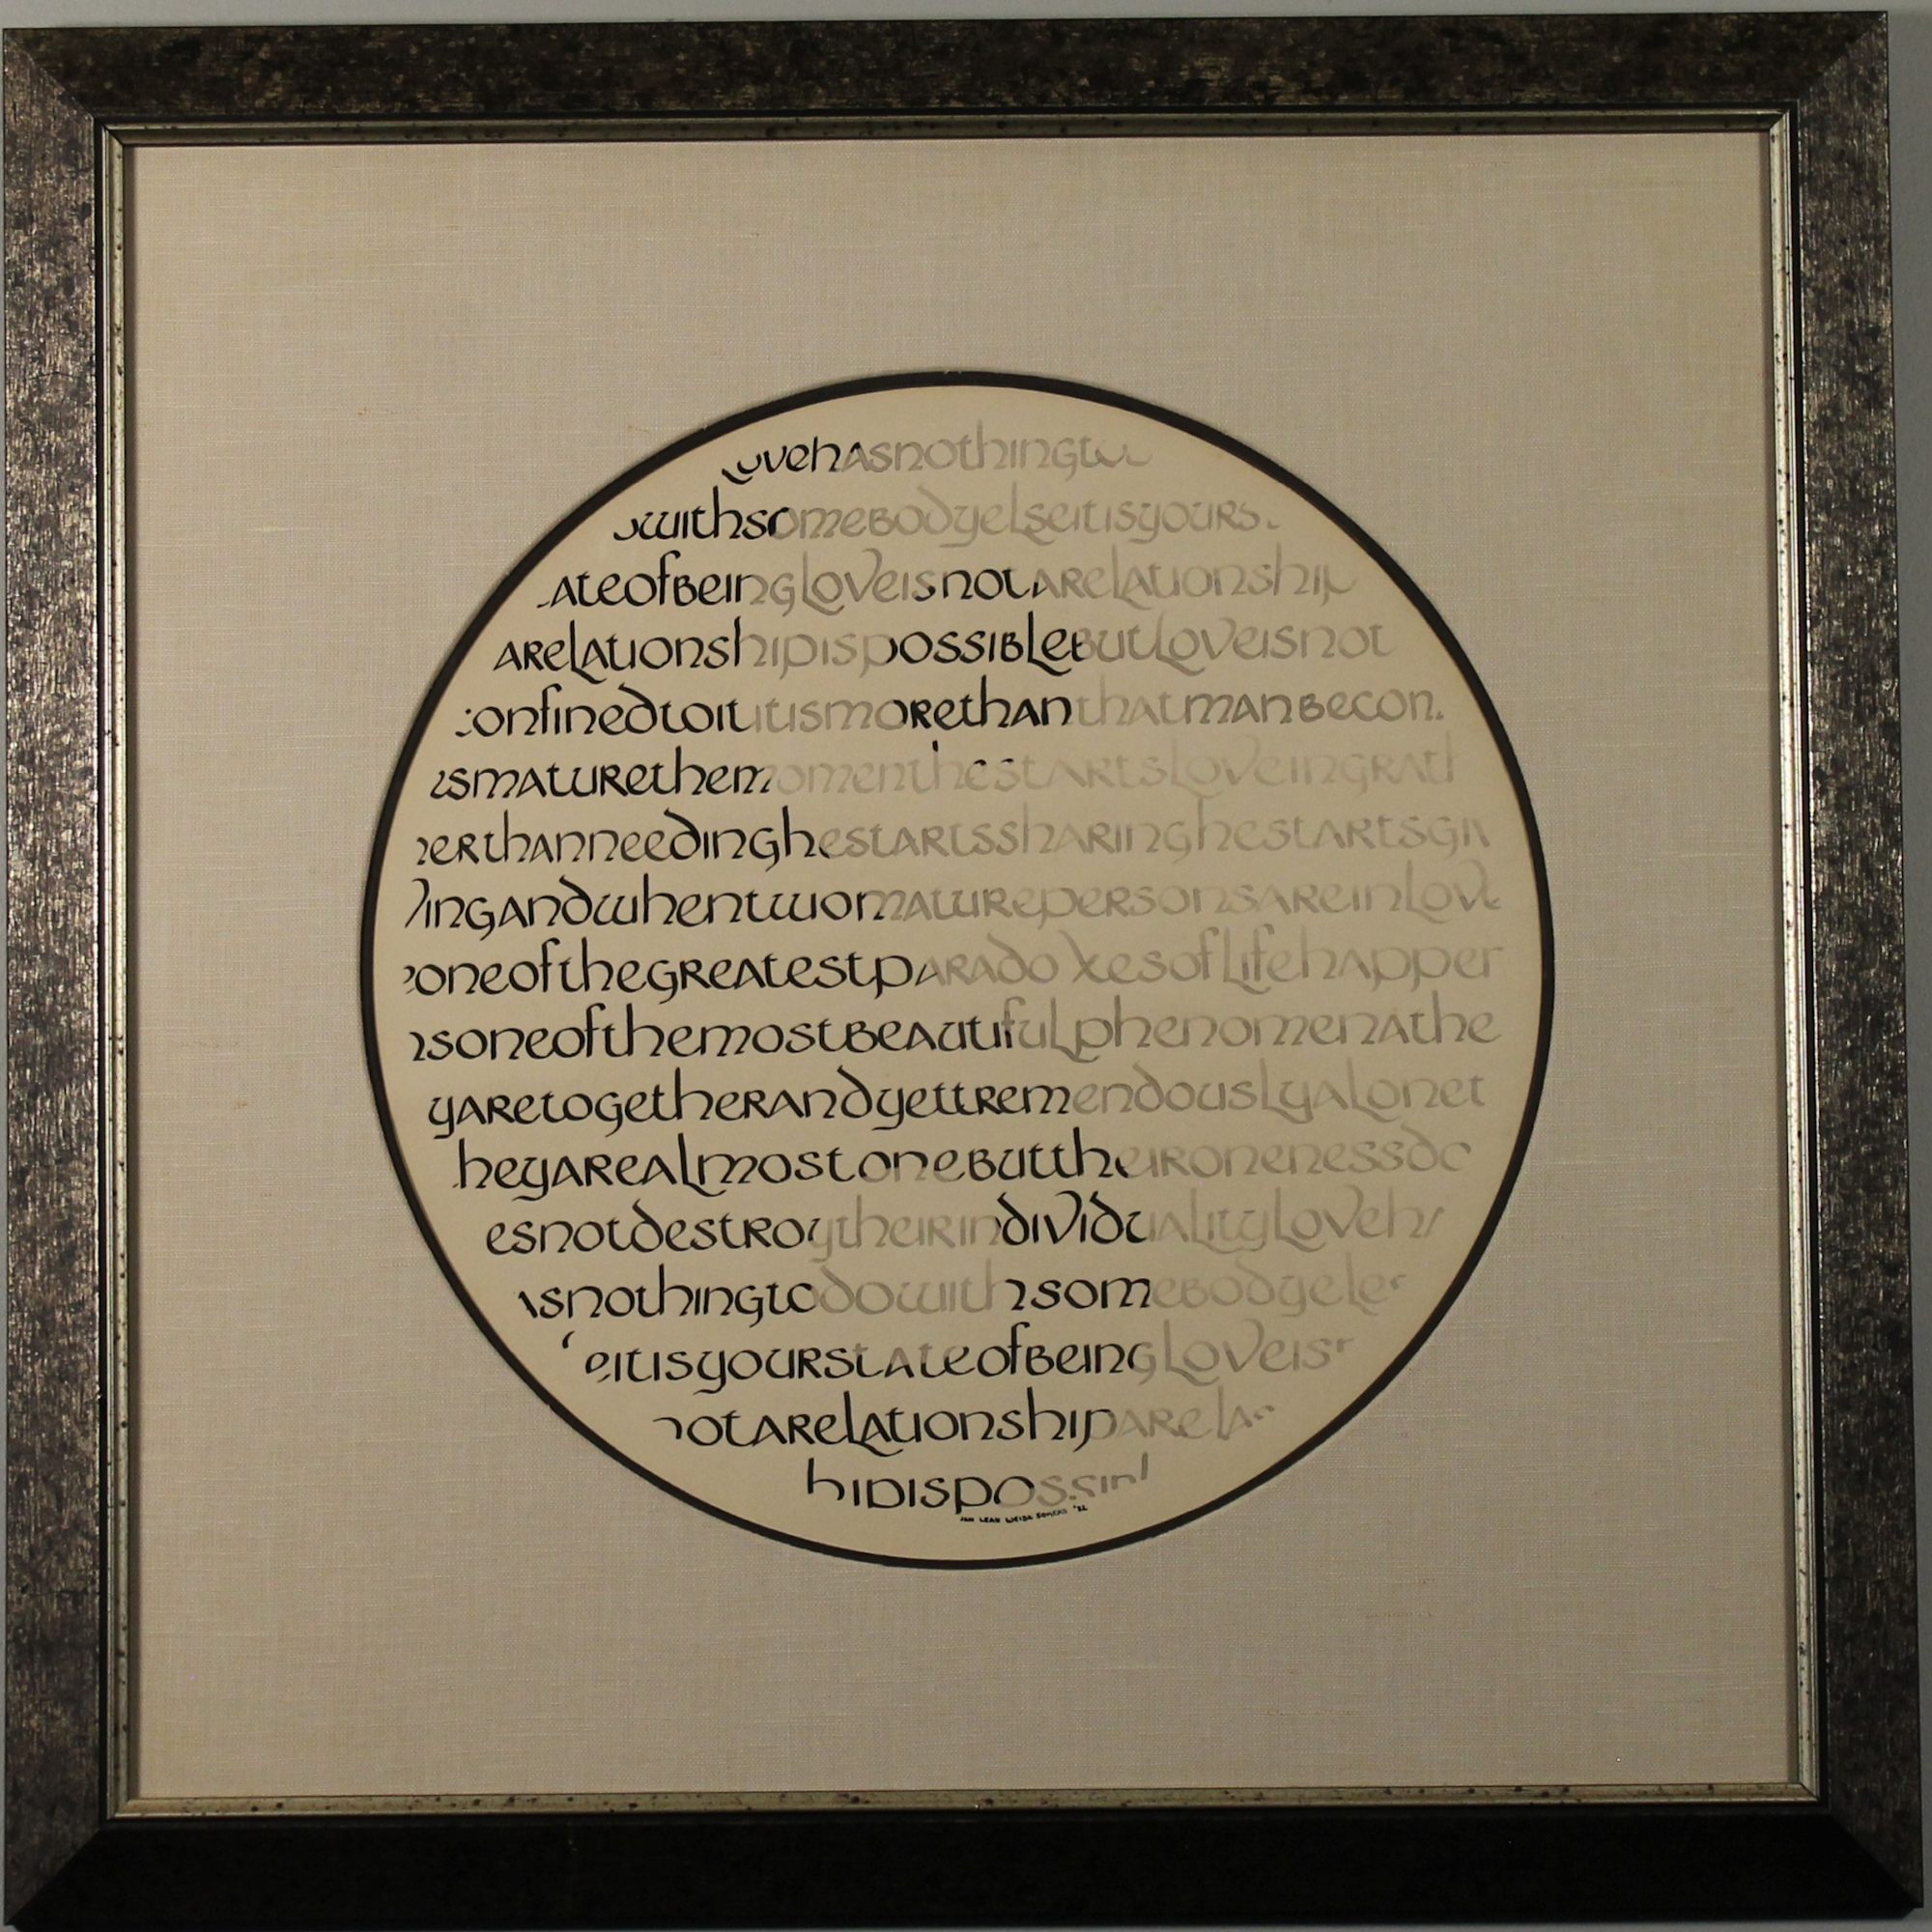 lovehasnothingto
owithsomebodyelseitisyours
ateofbeingloveisnotarelationship
arelationshipispossiblebutloveisnot
confinedtoititismorethanthatmanbecom
esmaturethemomenthestartsloveingrath
herthanneedinghestartssharinghestartsgiv
vingandwhentwomaturepersonsareinlove
eoneofthegreatestparadoxesoflifehappen
nsoneofthemostbeautifulphenomenathe
yaretogetherandyettremendouslyalonet
heyarealmostonebuttheironenessdo
esnotdestroytheirindividualityloveha
asnothingtodowithsomebodyeles
eitisyourstateofbeingloveisn
notarelationshiparelas
hipispossibl